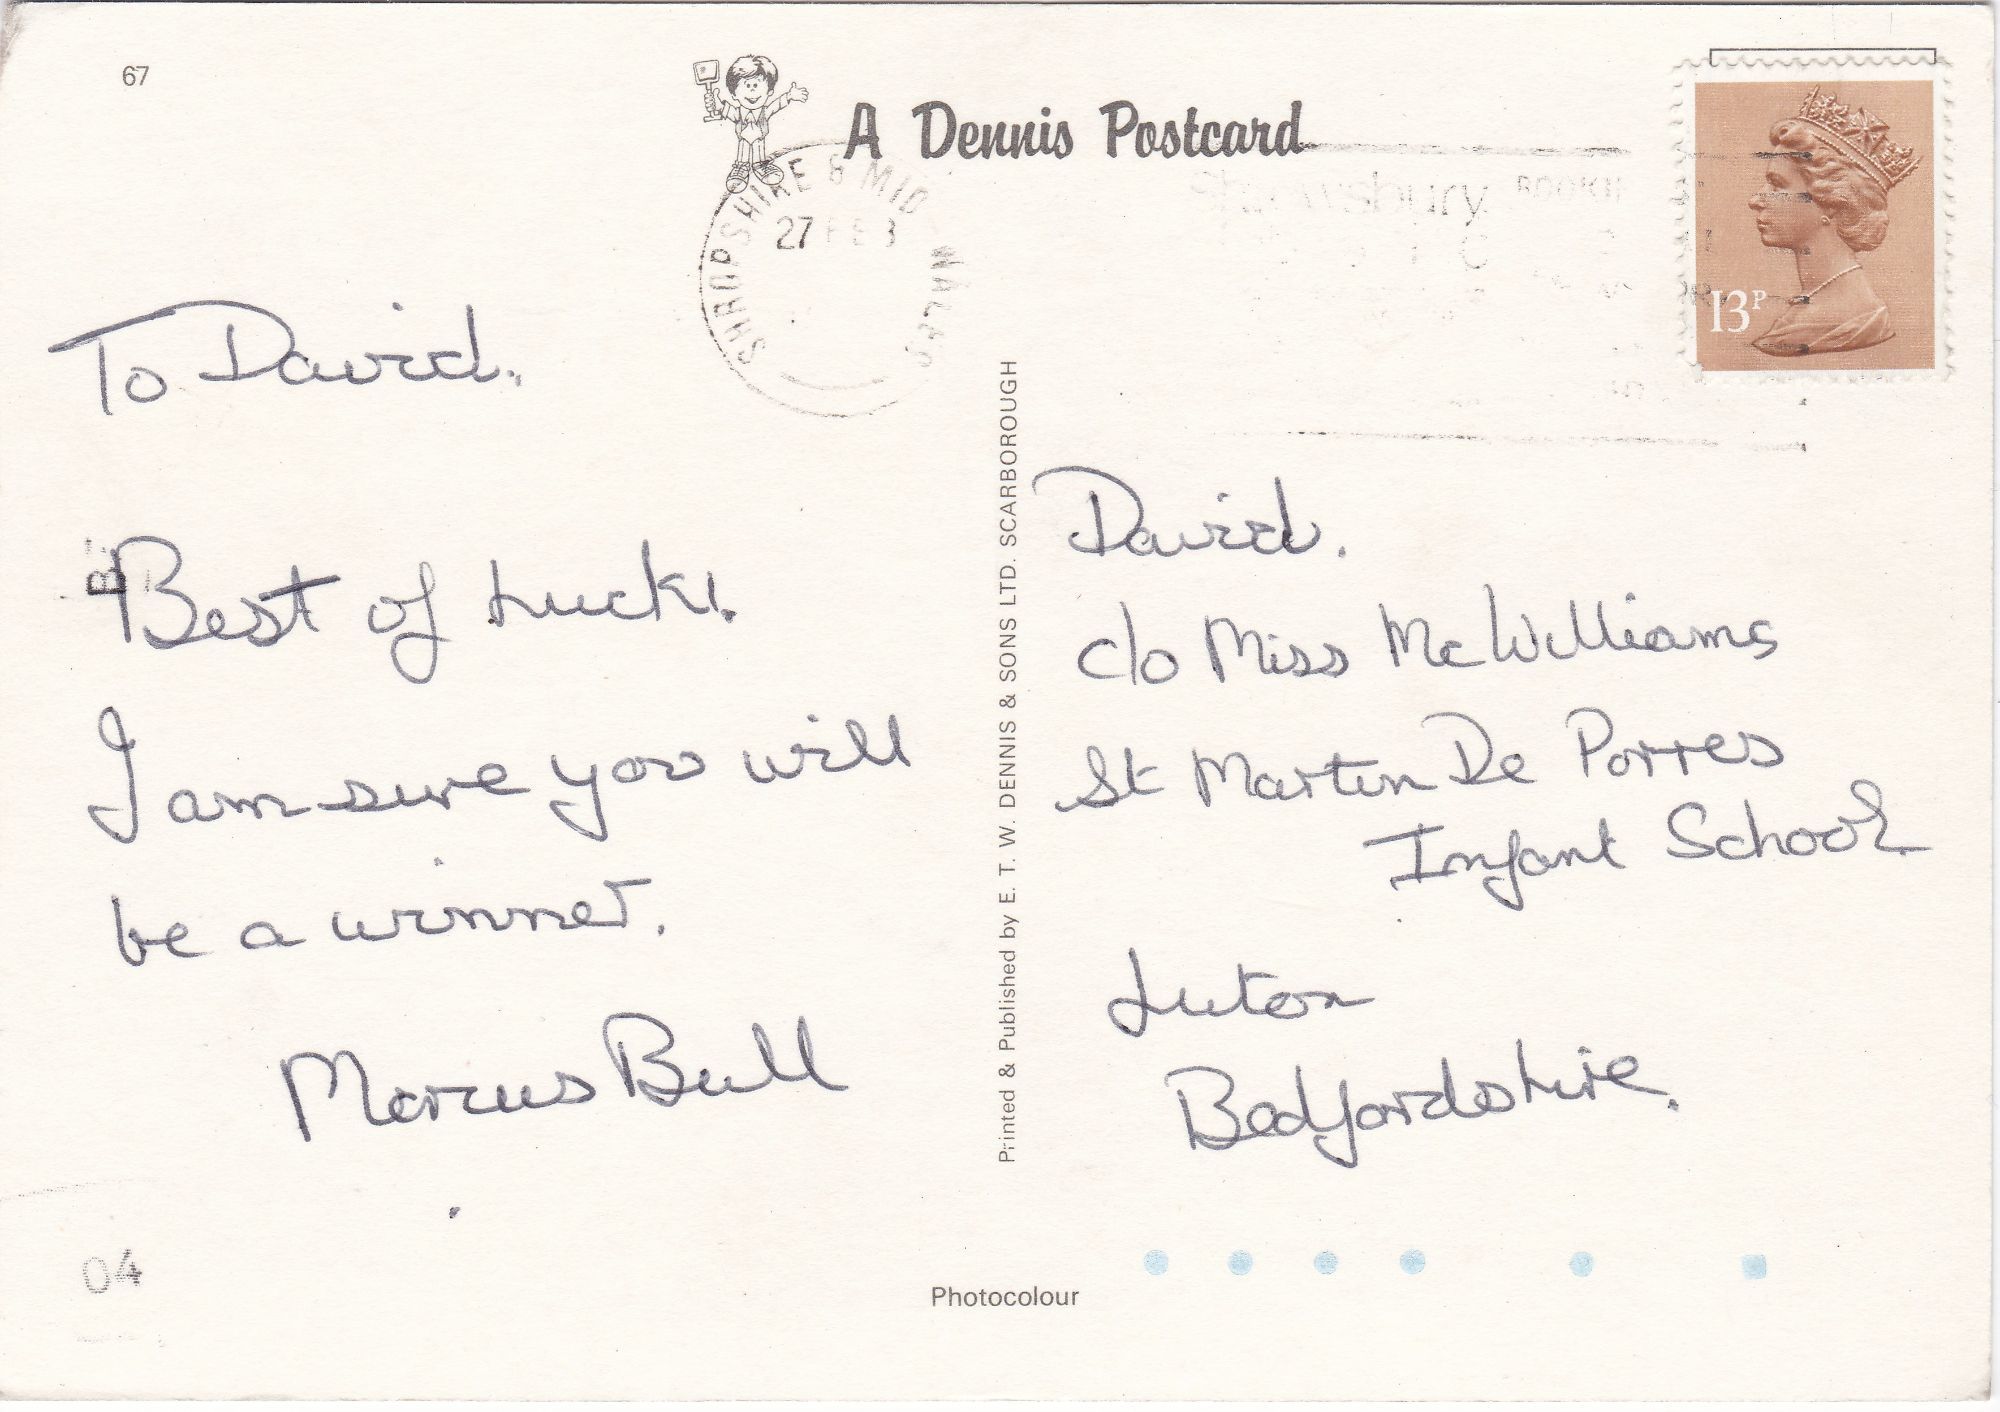 67
A Dennis Postcard
SHROPSHIRE & MID WALES
27 FEB
Shrewsbury
13P
To David.
Best of Luck!.
I am sure you will
be a winner.
Marcus Bull
04
Printed & Published by E. T. W. DENNIS & SONS LTD. SCARBOROUGH
David.
c/o Miss McWilliams
St Martin De Porres
Infant School
Luton
Bedfordshire.
Photocolour